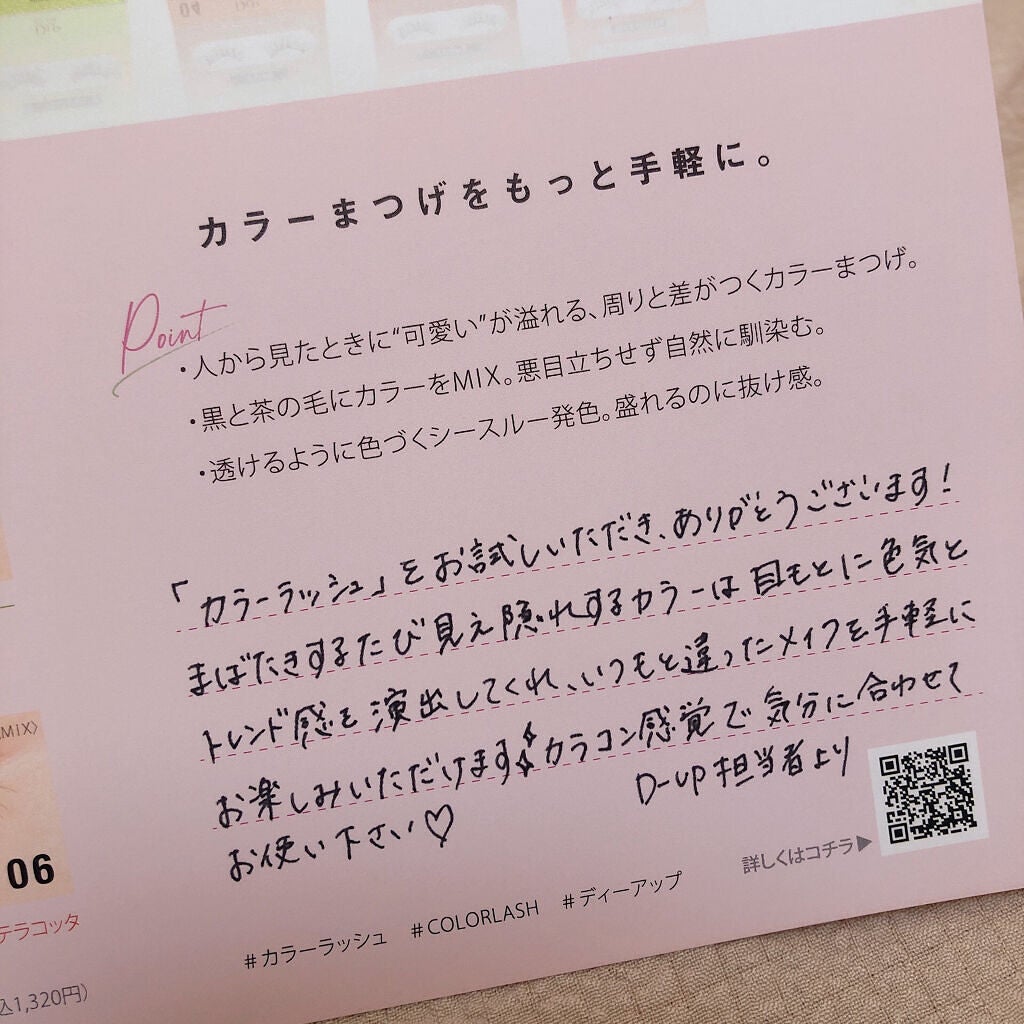 04
カラーまつげをもっと手軽に。
Point
・人から見たときに“可愛い”が溢れる、周りと差がつくカラーまつげ。
・黒と茶の毛にカラーをMIX。悪目立ちせず自然に馴染む。
・透けるように色づくシースルー発色。盛れるのに抜け感。
「カラーラッシュ」をお試しいただき、ありがとうございます！
まばたきするたび見え隠れするカラーは目もとに色気と
トレンド感を演出してくれ、いつもと違ったメイクを手軽に
お楽しみいただけます カラコン感覚で気分に合わせて
お使い下さい♡
D-UP担当者より
詳しくはコチラ▶
#カラーラッシュ #COLORLASH #ディーアップ
MIX〉
06
テラコッタ
込1,320円）